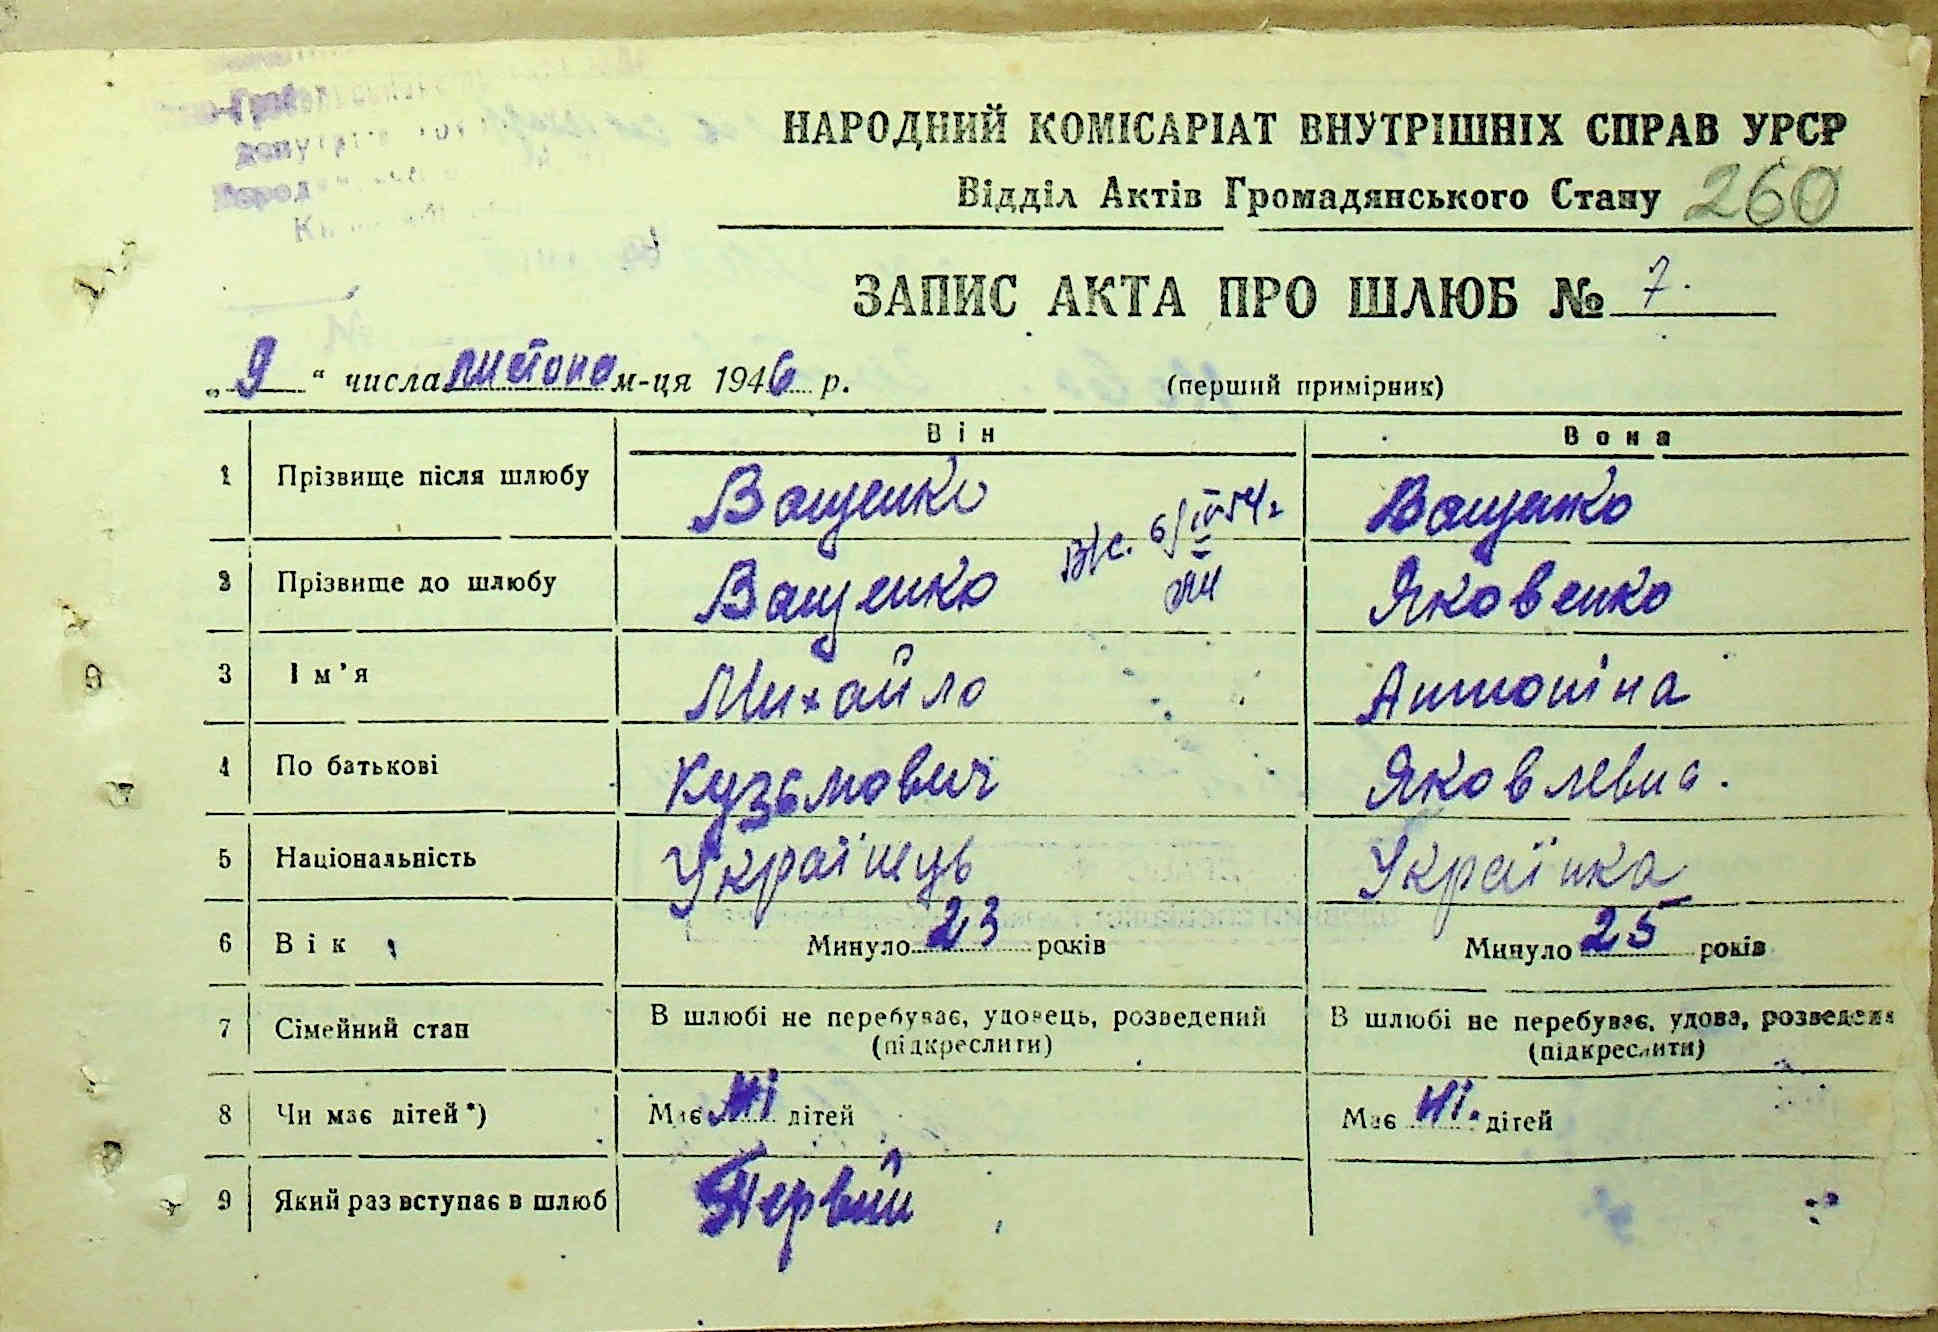 НАРОДНИЙ КОМІСАРІАТ ВНУТРІШНІХ СПРАВ УРСР
Відділ Актів Громадянського Стану 260
ЗАПИС АКТА ПРО ШЛЮБ № 7.
„ 9 “ числа листопа м-ця 1946 р. (перший примірник)
Він Вона
1 Прізвище після шлюбу Ващенко Ващенко
В/с. 6/IV 54г
2 Прізвище до шлюбу Ващенко Яковенко
3 Ім'я Михайло Антоніна
4 По батькові Кузьмович Яковлевна.
5 Національність Українець Українка
6 Вік Минуло 23 років Минуло 25 років
7 Сімейний стан В шлюбі не перебуває, удовець, розведений (підкреслити) В шлюбі не перебуває, удова, розведена (підкреслити)
8 Чи має дітей*) Має ні дітей Має ні. дітей
9 Який раз вступає в шлюб Первий